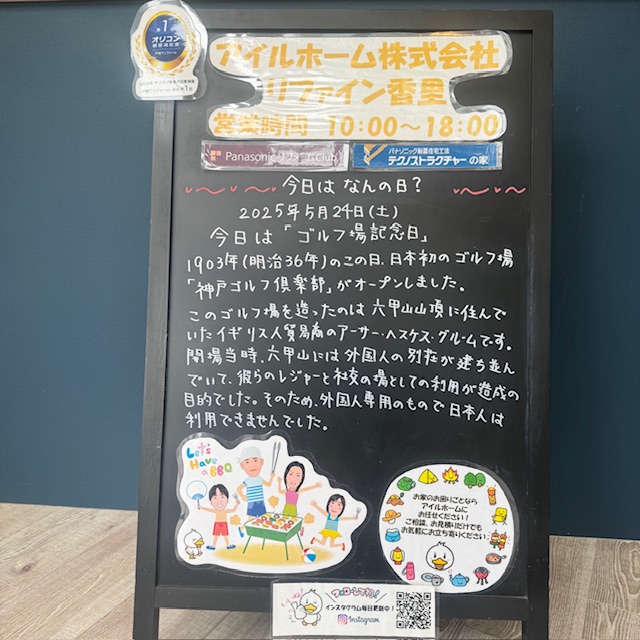 第1位
オリコン
顧客満足度
アイルホーム株式会社
リファイン香里
営業時間 10:00〜18:00
PanasonicリフォームClub
パナソニック耐震住宅工法
テクノストラクチャーの家
今日は なんの日?
2025年5月24日(土)
今日は「ゴルフ場記念日」
1903年(明治36年)のこの日、日本初のゴルフ場
「神戸ゴルフ倶楽部」がオープンしました。
このゴルフ場を造ったのは 六甲山山頂に住んで
いたイギリス人貿易商のアーサー・ヘスケス・グルームです。
開場当時、六甲山には外国人の別荘が建ち並ん
でいて、彼らのレジャーと社交の場としての利用が造成の
目的でした。そのため、外国人専用のもので日本人は
利用できませんでした。
Let's
Have
a BBQ
お家のお困りごとなら
アイルホームに
お任せください!
ご相談、お見積りだけでも
お気軽にお立ち寄りください
フォローしてね!
インスタグラム毎日更新中!
Instagram